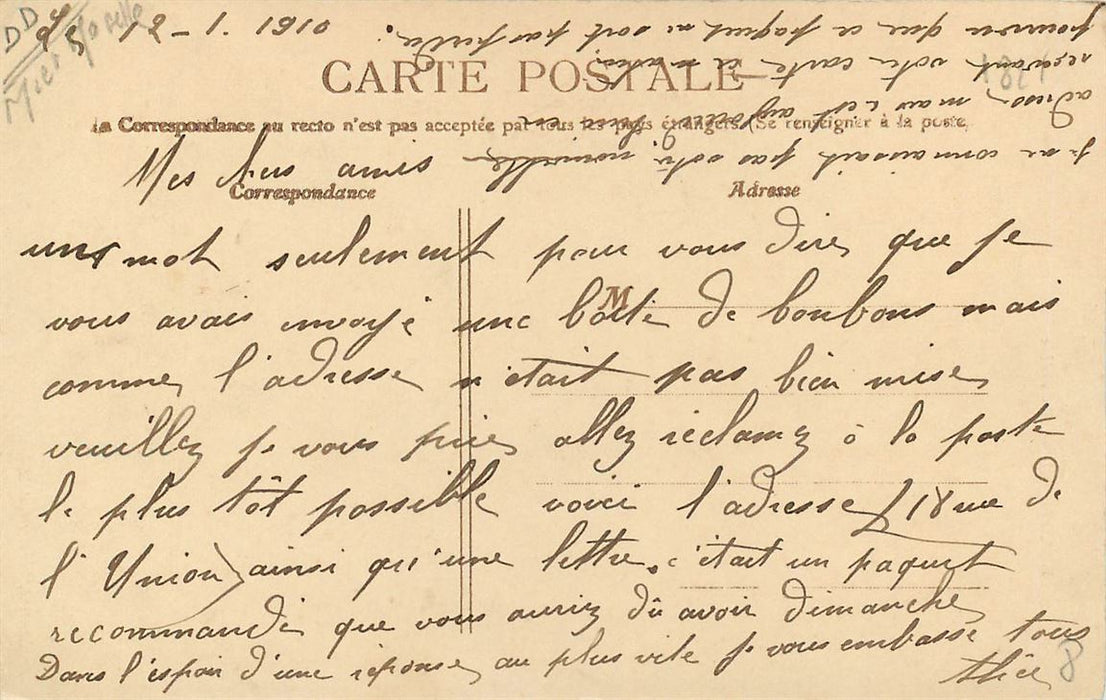 12-1. 1910
CARTE POSTALE
La Correspondance au recto n'est pas acceptée par tous les pays étrangers (Se renseigner à la poste
Correspondance
Adresse
M
Mes chers amis
une mot seulement pour vous dire que je
vous avais envoyé une boite de bonbons mais
comme l'adresse n'était pas bien mise
veuillez je vous prie allez réclamez à la poste
le plus tôt possible voici l'adresse (18 rue de
l'Union) ainsi qu'une lettre. c'était un paquet
recommandé que vous auriez dû avoir dimanche
Dans l'espoir d'une réponse au plus vite je vous embrasse tous
Alice
je ne connaissait pas votre nouvelle
adresse, mais c'est aujourd'hui en
recevant votre carte ce matin
pourvu que ce paquet ne soit pas perdu.
8